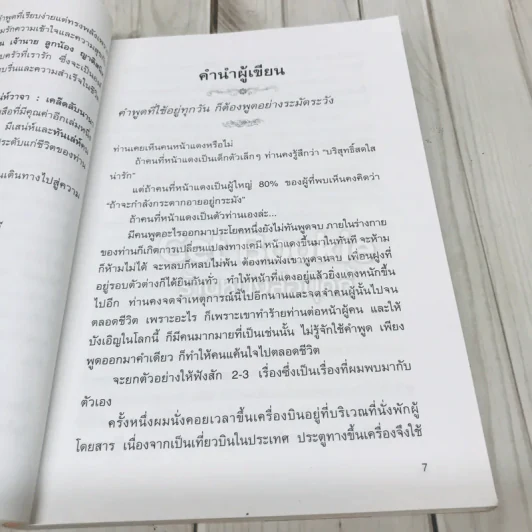 คำพูดที่เรียบง่ายแต่ทรงพลัง
เจ้านาย ลูกน้อง
ครัวที่เรารัก ซึ่งจะเป็น
และความสำเร็จ
เคล็ดลับ
มีเสน่ห์และทันเล่ห์
ระดับแก่ชีวิตของท่าน
เดินทางไปสู่ความ
คำนำผู้เขียน
คำพูดที่ใช้อยู่ทุกวัน ก็ต้องพูดอย่างระมัดระวัง
ท่านเคยเห็นคนหน้าแดงหรือไม่
ถ้าคนที่หน้าแดงเป็นเด็กตัวเล็กๆ ท่านคงรู้สึกว่า "บริสุทธิ์สดใส
น่ารัก"
แต่ถ้าคนที่หน้าแดงเป็นผู้ใหญ่ 80% ของผู้ที่พบเห็นคงคิดว่า
"ถ้าจะกำลังกระดากอายอยู่กระมัง"
ถ้าคนที่หน้าแดงเป็นตัวท่านเองล่ะ...
มีคนพูดอะไรออกมาประโยคหนึ่งยังไม่ทันพูดจบ ภายในร่างกาย
ของท่านก็เกิดการเปลี่ยนแปลงทางเคมี หน้าแดงขึ้นมาในทันที จะห้าม
ก็ห้ามไม่ได้ จะหลบก็หลบไม่พ้น ต้องทนฟังเขาพูดจนจบ เพื่อนฝูงที่
อยู่รอบตัวต่างก็ได้ยินกันทั่ว ทำให้หน้าที่แดงอยู่แล้วยิ่งแดงหนักขึ้น
ไปอีก ท่านคงจดจำเหตุการณ์นี้ไปอีกนานและจดจำคนผู้นั้นไปจน
ตลอดชีวิต เพราะอะไร ก็เพราะเขาทำร้ายท่านต่อหน้าผู้คน และให้
บังเอิญในโลกนี้ ก็มีคนมากมายที่เป็นเช่นนั้น ไม่รู้จักใช้คำพูด เพียง
พูดออกมาคำเดียว ก็ทำให้คนแค้นใจไปตลอดชีวิต
จะยกตัวอย่างให้ฟังสัก 2-3 เรื่องซึ่งเป็นเรื่องที่ผมพบมากับ
ตัวเอง
ครั้งหนึ่งผมนั่งคอยเวลาขึ้นเครื่องบินอยู่ที่บริเวณที่นั่งพักผู้
โดยสาร เนื่องจากเป็นเที่ยวบินในประเทศ ประตูทางขึ้นเครื่องจึงใช้
7